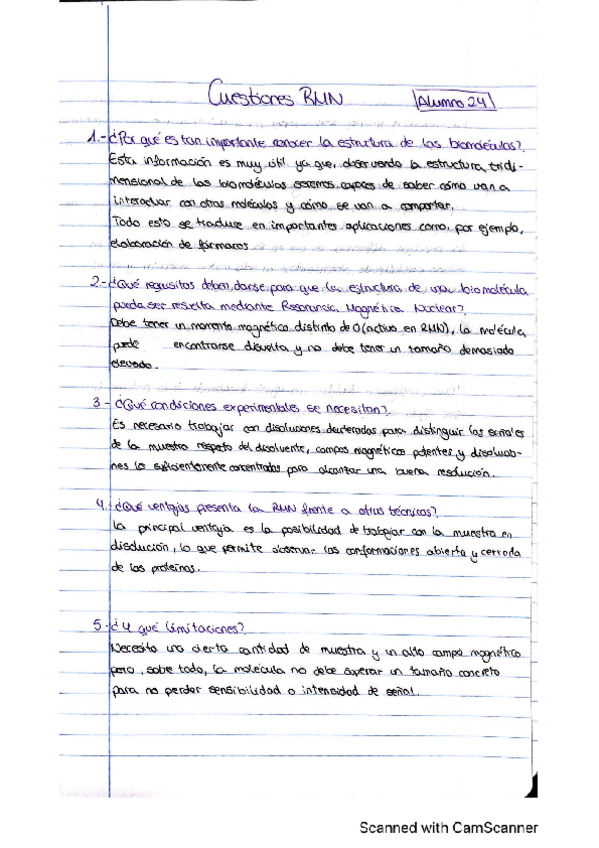 Cuestiones RMN
Alumno 24
1.- ¿Por qué es tan importante conocer la estructura de las biomoléculas?
Esta información es muy útil ya que, observando la estructura tridi-
mensional de las biomoléculas seremos capaces de saber cómo van a
interactuar con otras moléculas y cómo se van a comportar.
Todo esto se traduce en importantes aplicaciones como, por ejemplo,
elaboración de fármacos.
2.- ¿Qué requisitos deben darse para que la estructura de una biomolécula
pueda ser resuelta mediante Resonancia Magnética Nuclear?
Debe tener un momento magnético distinto de 0 (activo en RMN), la molécula
puede encontrarse disuelta y no debe tener un tamaño demasiado
elevado.
3.- ¿Qué condiciones experimentales se necesitan?
Es necesario trabajar con disoluciones deuteradas para distinguir las señales
de la muestra respeto del disolvente, campos magnéticos potentes y disolucio-
nes lo suficientemente concentradas para alcanzar una buena resolución.
4.- ¿Qué ventajas presenta la RMN frente a otras técnicas?
La principal ventaja es la posibilidad de trabajar con la muestra en
disolución, lo que permite observar las conformaciones abierta y cerrada
de las proteínas.
5.- ¿Y qué limitaciones?
Necesita una cierta cantidad de muestra y un alto campo magnético
pero, sobre todo, la molécula no debe superar un tamaño concreto
para no perder sensibilidad o intensidad de señal.
Scanned with CamScanner